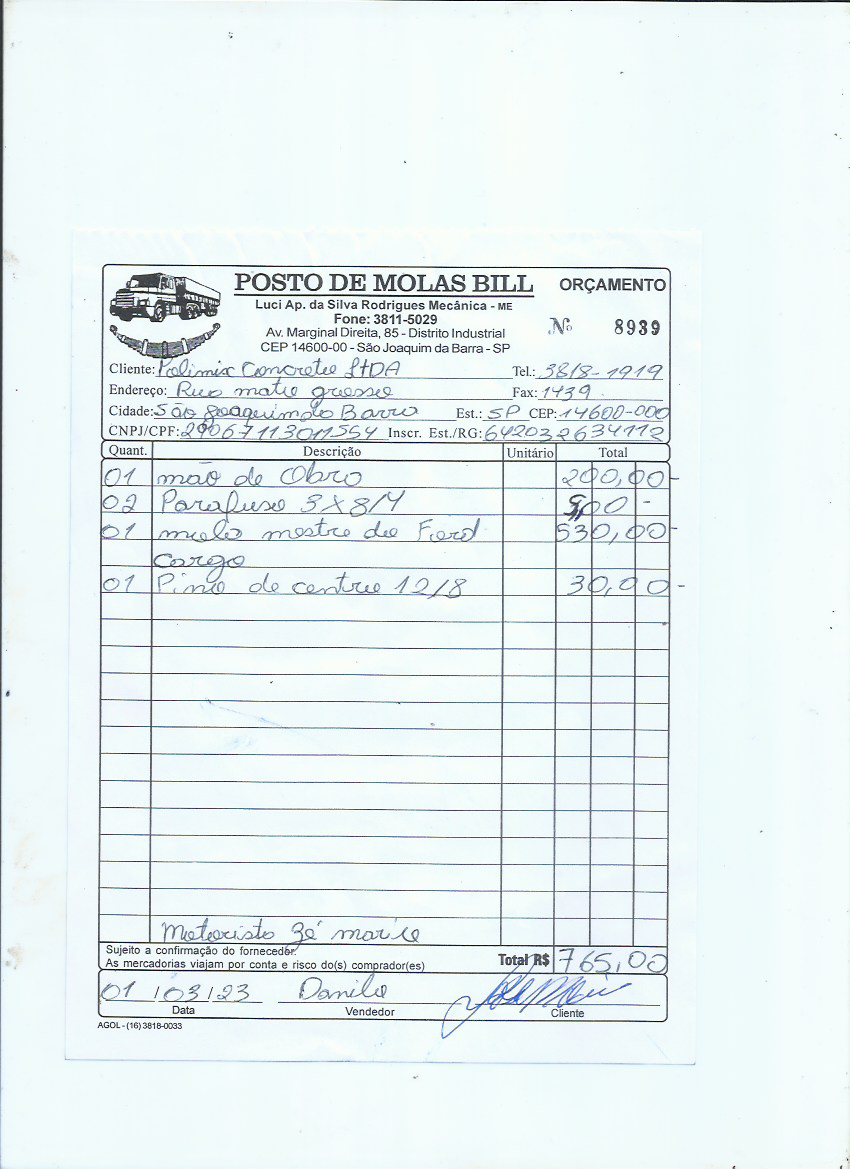 POSTO DE MOLAS BILL
ORÇAMENTO
Luci Ap. da Silva Rodrigues Mecânica - ME
Fone: 3811-5029
Nº 8939
Av. Marginal Direita, 85 - Distrito Industrial
CEP 14600-00 - São Joaquim da Barra - SP
Cliente: Polimix Concreto LtDA Tel.: 3818-1919
Endereço: Rua mato grosso Fax: 1439
Cidade: São Joaquim da Barra Est.: SP CEP: 14600-000
CNPJ/CPF: 29067113011554 Inscr. Est./RG: 642032634112
Quant. Descrição Unitário Total
01 mão de Obra 200,00-
02 Parafuso 3x8/4 5,00 -
01 mola mestre do Ford 530,00-
Cargo
01 Pino de centro 12/8 30,00-
Motorista Zé maria
Sujeito a confirmação do fornecedor.
As mercadorias viajam por conta e risco do(s) comprador(es)
Total R$ 765,00
01/03/23 Danilo
Data Vendedor Cliente
AGOL - (16) 3818-0033